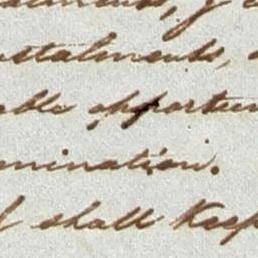 instalments,
able opportun
mination.
I shall Keep